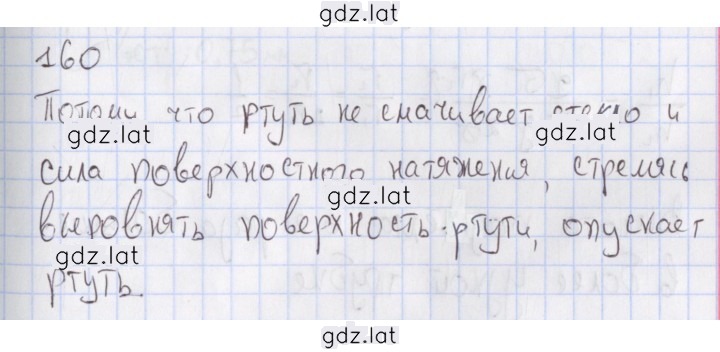 gdz.lat
160
Потому что ртуть не смачивает стекло и
gdz.lat
gdz.lat
сила поверхностного натяжения, стремясь
gdz.lat
выровнять поверхность ртути, опускает
gdz.lat
gdz.lat
ртуть.
gdz.lat